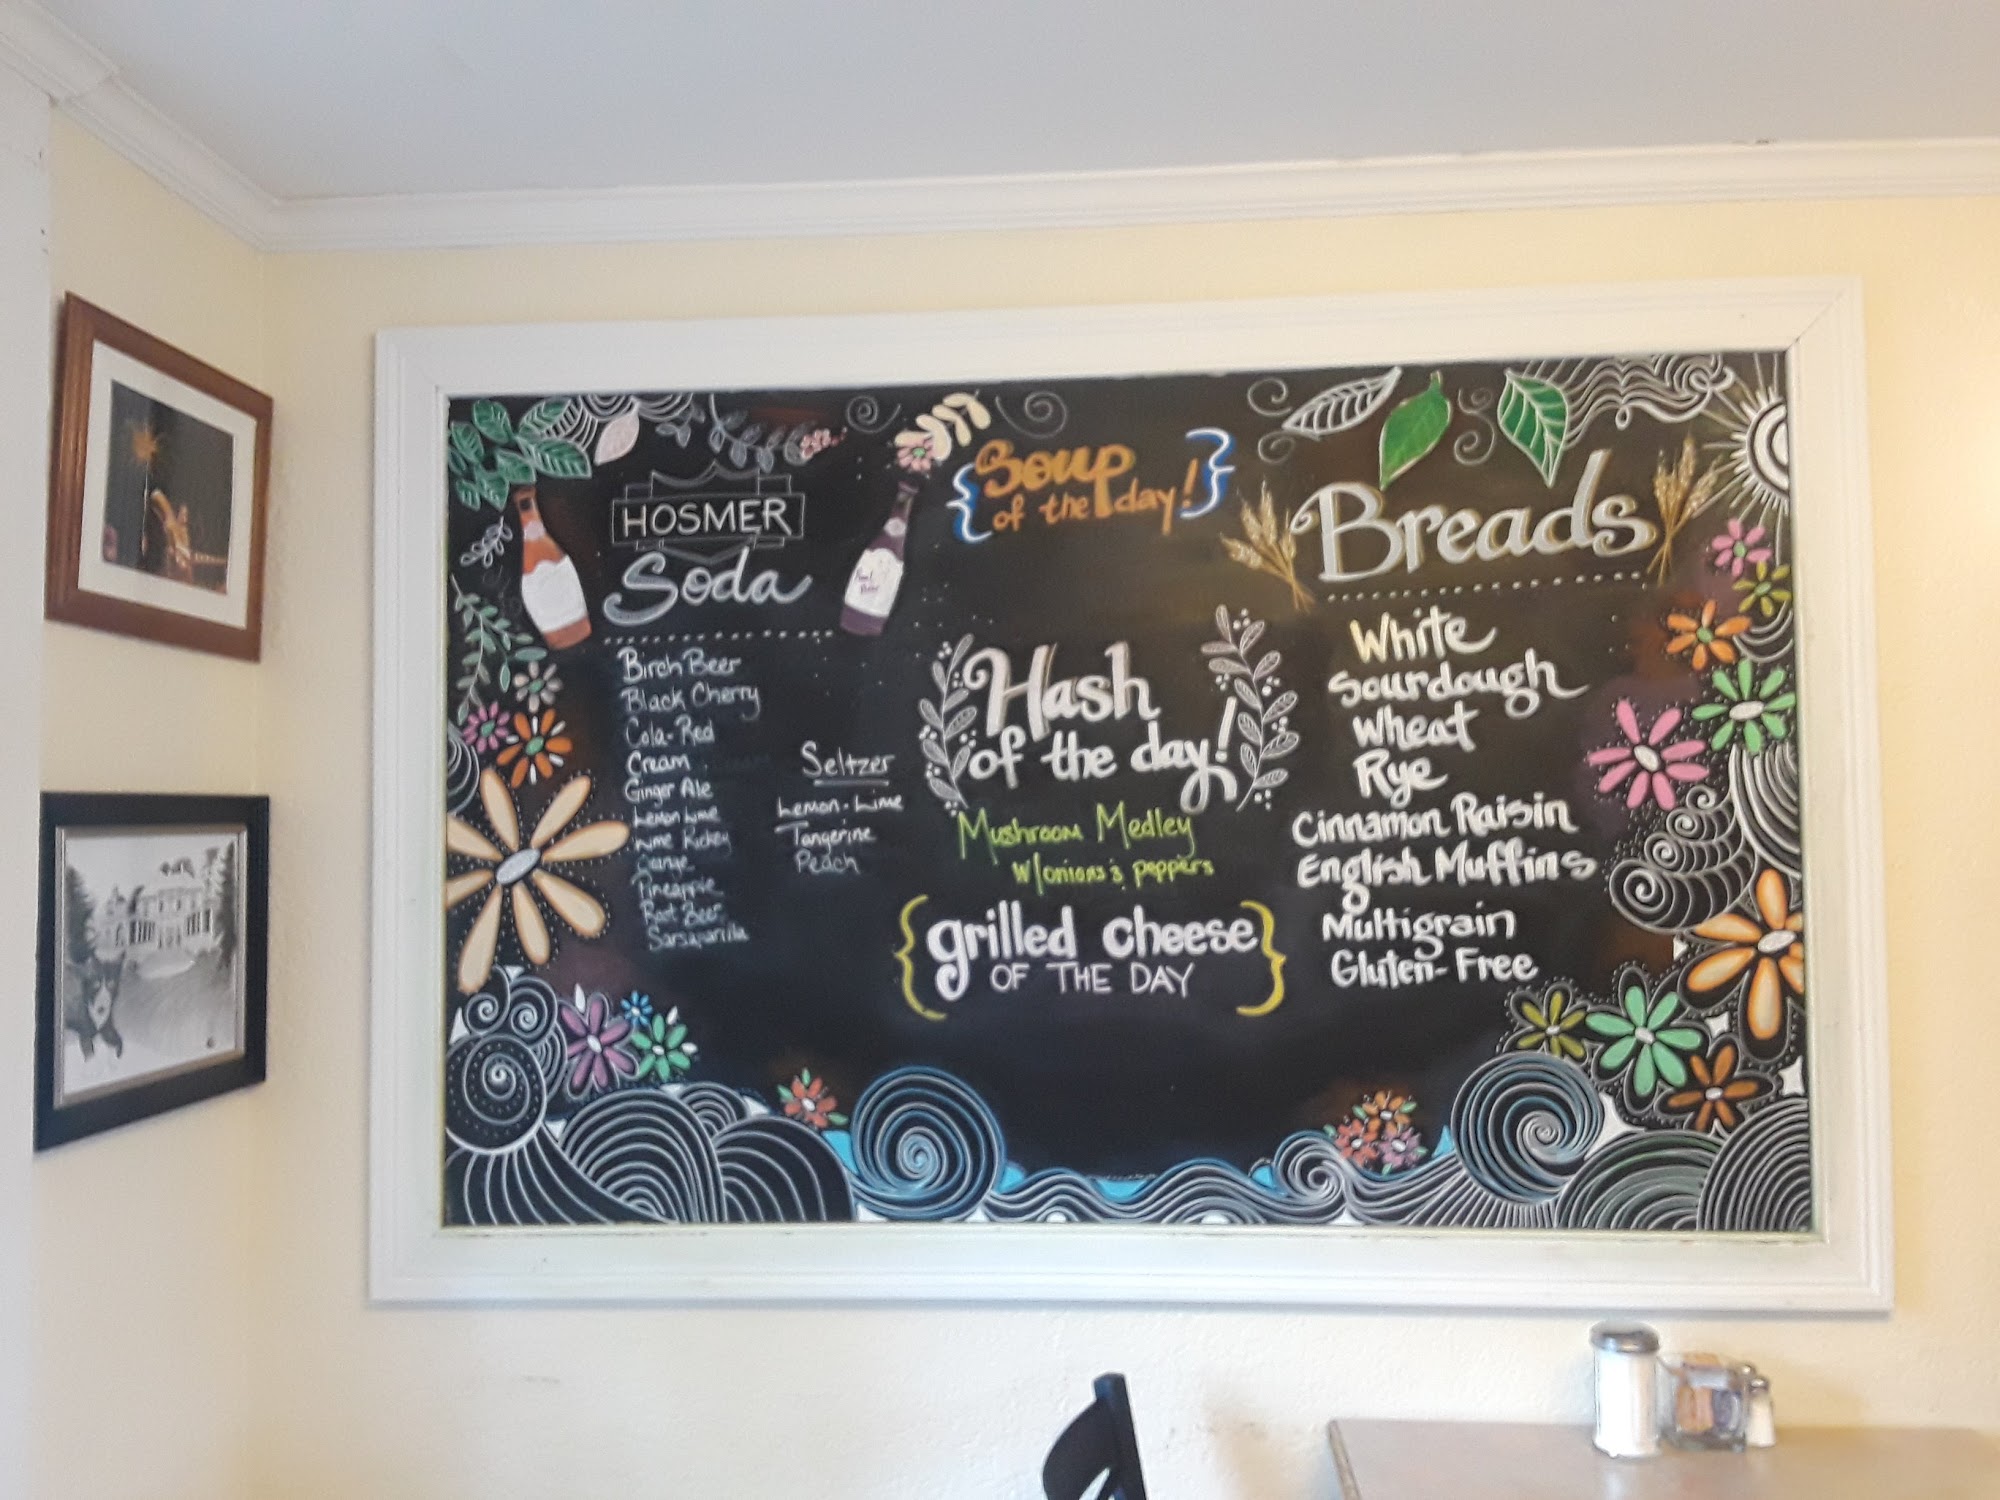 HOSMER
Soda
Birch Beer
Black Cherry
Cola-Red
Cream
Ginger Ale
Lemon Lime
Lime Rickey
Orange
Pineapple
Root Beer
Sarsaparilla
Seltzer
Lemon-Lime
Tangerine
Peach
Root
Beer
Soup
of the day!
Hash
of the day!
Mushroom Medley
W/onions & peppers
grilled cheese
OF THE DAY
Breads
White
Sourdough
Wheat
Rye
Cinnamon Raisin
English Muffins
Multigrain
Gluten-Free